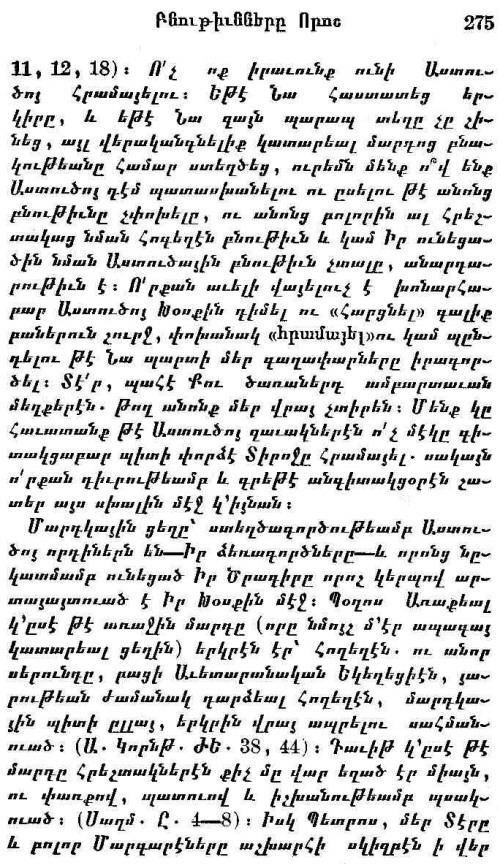 Բնութիւնները Որոշ 275
11, 12, 18)։ Ո՛չ ոք իրաւունք ունի Աստու-
ծոյ Հրամայելու։ Եթէ Նա Հաստատեց եր-
կիրը, և եթէ Նա զայն պարապ տեղը չը շի-
նեց, այլ վերականգնելիք կատարեալ մարդոց բնա-
կութեանը Համար ստեղծեց, ուրեմն մենք ո՞վ ենք
Աստուծոյ դէմ պատասխանելու ու ըսելու թէ անոնց
բնութիւնը չփոխելը, ու անոնց բոլորին ալ Հրեշ-
տակաց նման Հոգեղէն բնութիւն և կամ Իր ունեցա-
ծին նման Աստուծային բնութիւն չտալը, անարդա-
րութիւն է։ Ո՛րքան աւելի վայելուչ է խոնարՀա-
բար Աստուծոյ Խօսքին դիմել ու «Հարցնել» գալիք
բաներուն շուրջ, փոխանակ «հրամայել»ու կամ պըն-
դելու թէ Նա պարտի մեր գաղափարները իրագոր-
ծել։ Տէ՛ր, պաՀէ Քու ծառաներդ ամբարտաւան
մեղքերէն. թող անոնք մեր վրայ չտիրեն։ Մենք կը
Հաւատանք թէ Աստուծոյ զաւակներէն ո՛չ մէկը գի-
տակցաբար պիտի փորձէ Տիրոջը Հրամայել. սակայն
ո՛րքան դիւրութեամբ և գրեթէ անգիտակցօրէն շա-
տեր այս սխալին մէջ կ՚իյնան։
Մարդկային ցեղը՝ ստեղծագործութեամբ Աստու-
ծոյ որդիներն են—Իր ձեռագործները—և որոնց նը-
կատմամբ ունեցած Իր Ծրագիրը որոշ կերպով ար-
տայայտուած է Իր Խօսքին մէջ։ Պօղոս Առաքեալ
կ՚ըսէ թէ առաջին մարդը (որը նմոյշ մ՚էր ապագայ
կատարեալ ցեղին) երկրէն էր՝ Հողեղէն. ու անոր
սերունդը, բացի Աւետարանական Եկեղեցիէն, յա-
րութեան ժամանակ դարձեալ Հողեղէն, մարդկա-
յին պիտի ըլլայ, երկրին վրայ ապրելու սահման-
ուած։ (Ա. Կորնթ. ԺԵ. 38, 44)։ Դաւիթ կ՚ըսէ թէ
մարդը Հրեշտակներէն քիչ մը վար եղած էր միայն,
ու փառքով, պատուով և իշխանութեամբ պսակ-
ուած։ (Սաղմ. Ը. 4—8)։ Իսկ Պետրոս, մեր Տէրը
և բոլոր Մարգարէները աշխարհի սկիզբէն ի վեր